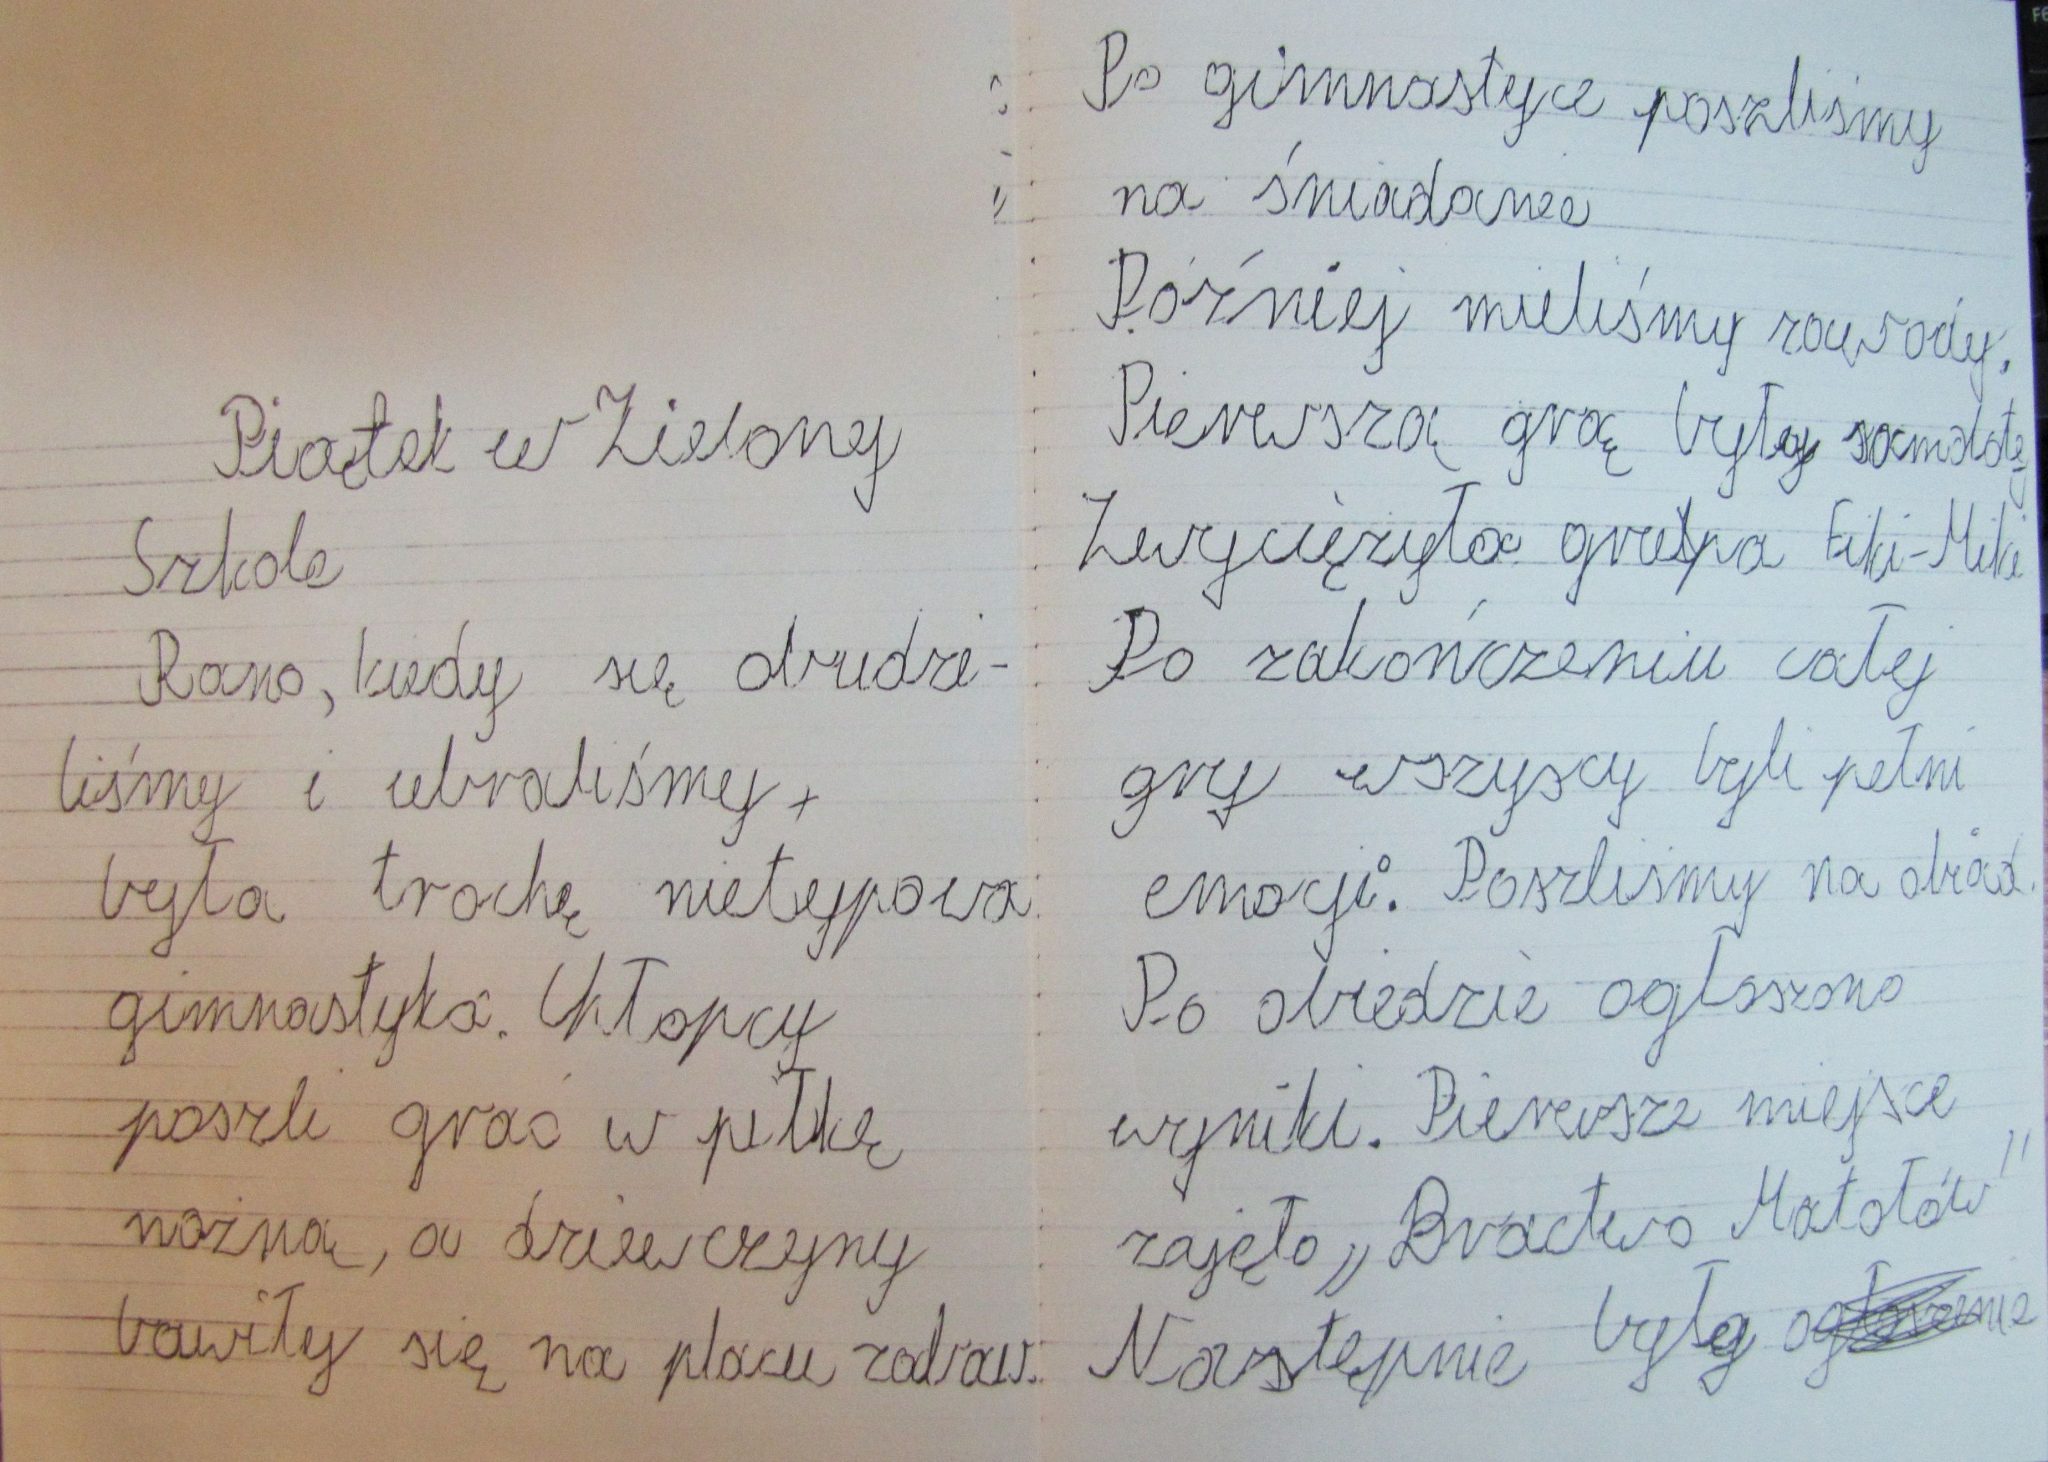 Piątek w Zielonej
Szkole
Rano, kiedy się obudzi-
liśmy i ubraliśmy,
była trochę nietypowa
gimnastyka. Chłopcy
poszli grać w piłkę
nożną, a dziewczyny
bawiły się na placu zabaw.
Po gimnastyce poszliśmy
na śniadanie
Później mieliśmy zawody.
Pierwszą grą były samoloty
Zwyciężyła grupa Fiki-Miki
Po zakończeniu całej
gry wszyscy byli pełni
emocji. Poszliśmy na obiad.
Po obiedzie ogłoszono
wyniki. Pierwsze miejsce
zajęło „Bractwo Matołów"
Następnie były